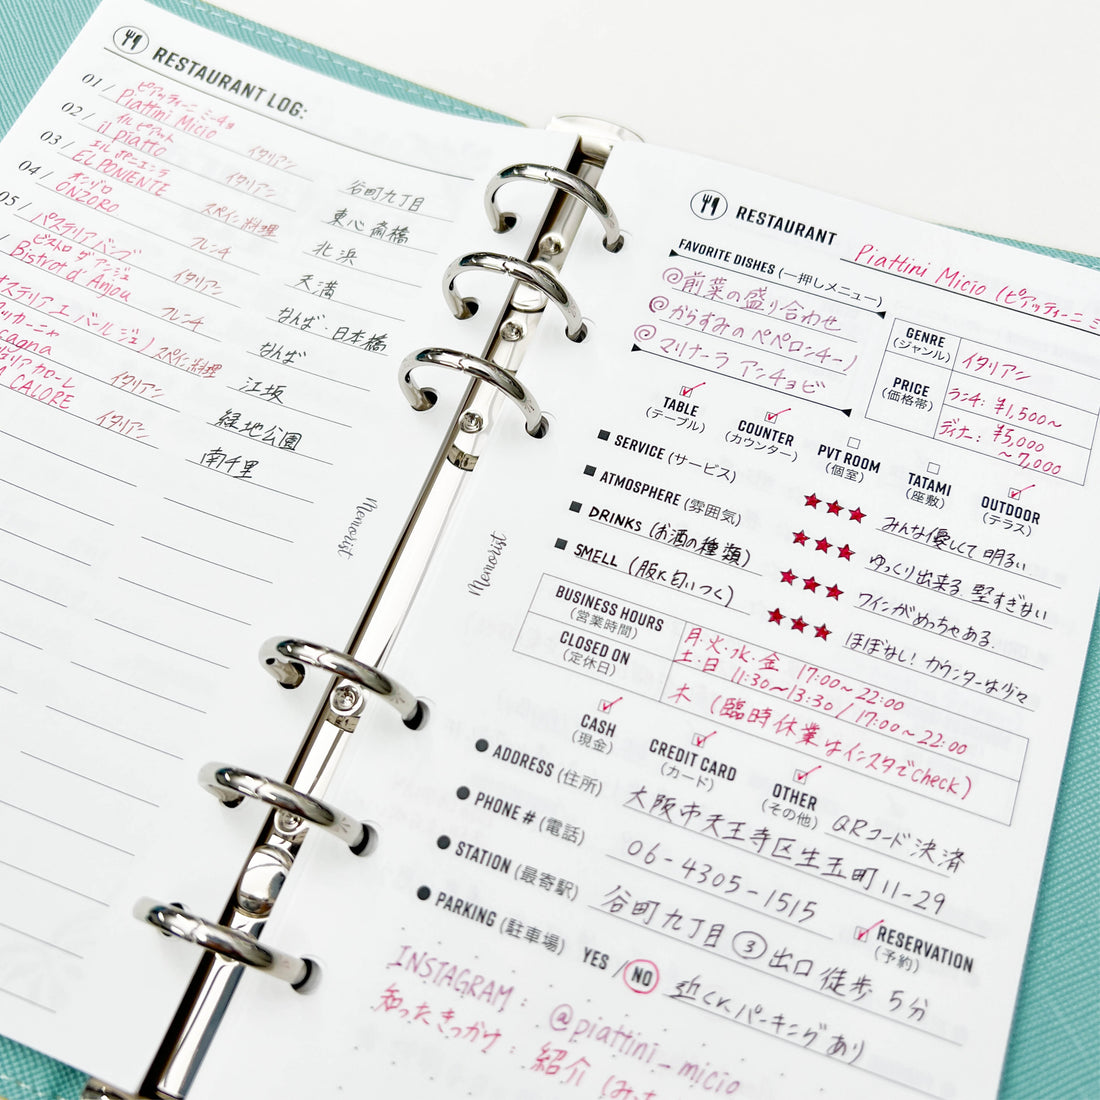 RESTAURANT LOG:
01 / ピアッティーニ ミーチョ
Piattini Micio イタリアン 谷町九丁目
02 / イル ピアット
il piatto イタリアン 東心斎橋
03 / エル ポニエンテ
EL PONIENTE スペイン料理 北浜
04 / オンゾロ
ONZORO フレンチ 天満
05 / パステリアバーブ イタリアン なんば・日本橋
ビストロ ダ アンジュ
Bistrot d' Anjou フレンチ なんば
ステリア エ バール ジェ) スペイン料理 江坂
cagna イタリアン 緑地公園
カローレ
CALORE イタリアン 南千里
Memorist
Memorist
RESTAURANT Piattini Micio (ピアッティーニ ミ
FAVORITE DISHES (一押しメニュー)
@前菜の盛り合わせ
@からすみのペペロンチーノ
@マリナーラ アンチョビ
GENRE
(ジャンル) イタリアン
PRICE
(価格帯) ランチ: ¥1,500〜
ディナー: ¥5,000
〜7,000
TABLE
(テーブル)
COUNTER
(カウンター)
PVT ROOM
(個室)
TATAMI
(座敷)
OUTDOOR
(テラス)
SERVICE (サービス) ★★★ みんな優しくて明るい
ATMOSPHERE (雰囲気) ★★★ ゆっくり出来る. 堅すぎない
DRINKS (お酒の種類) ★★★ ワインがめっちゃある.
SMELL (服に匂いつく) ★★★ ほぼなし! カウンターは少々
BUSINESS HOURS
(営業時間) 月・火・水・金 17:00〜22:00
土・日 11:30〜13:30 / 17:00〜22:00
CLOSED ON
(定休日) 木 (臨時休業はインスタでcheck)
CASH
(現金)
CREDIT CARD
(カード)
OTHER
(その他) QRコード決済
ADDRESS (住所) 大阪市天王寺区生玉町11-29
PHONE # (電話) 06-4305-1515
STATION (最寄駅) 谷町九丁目 ③出口 徒歩 5分
RESERVATION
(予約)
PARKING (駐車場) YES / NO 近くにパーキングあり
INSTAGRAM: @piattini_micio
知ったきっかけ: 紹介